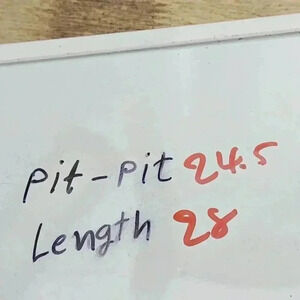 Pit-Pit 24.5
Length 28